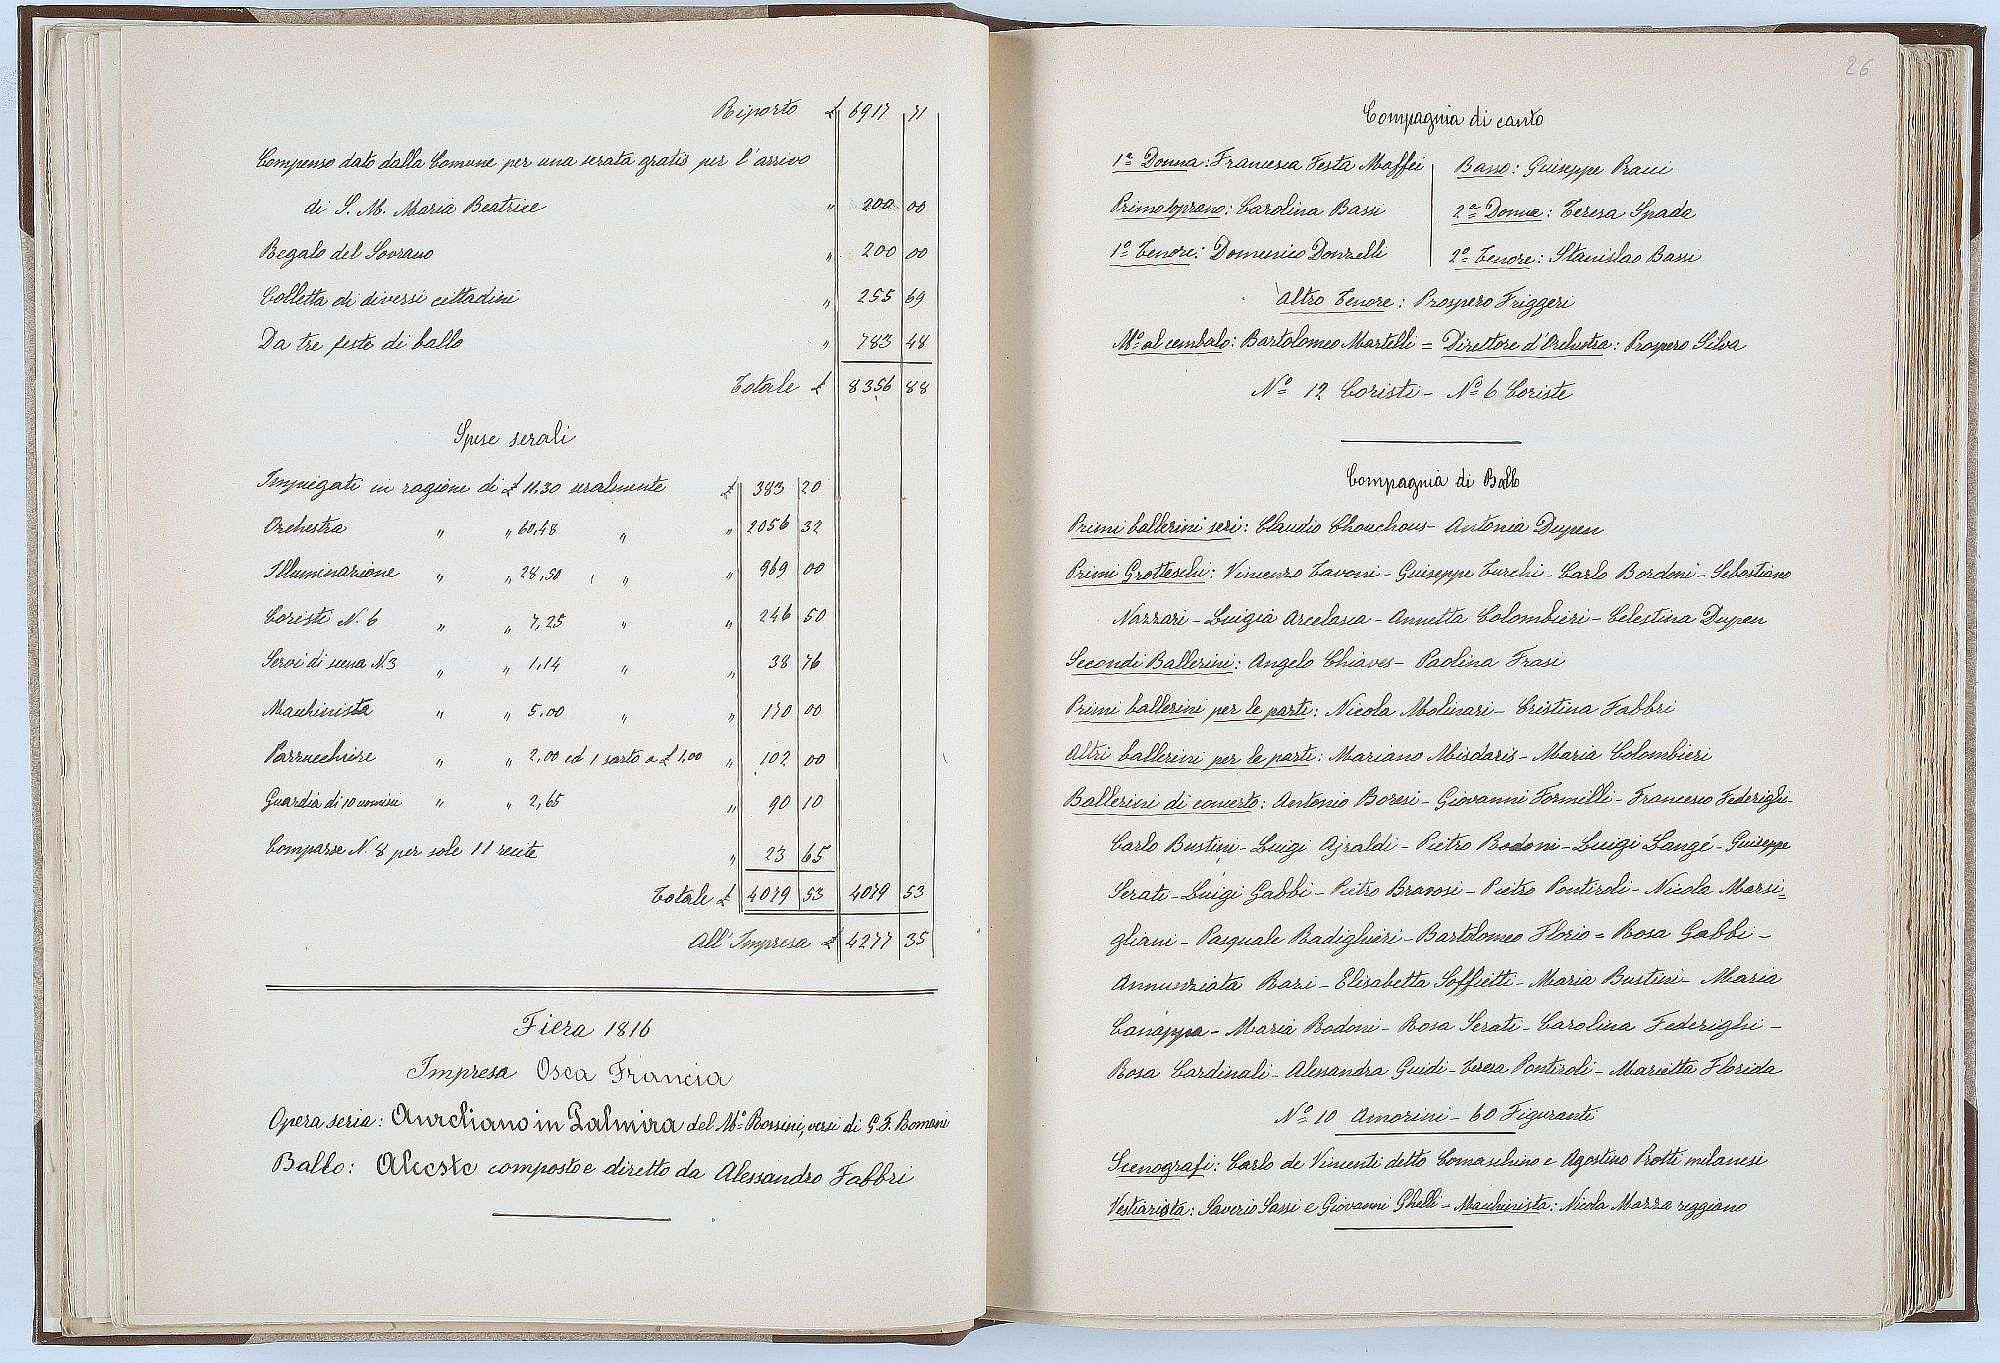 Riporto £ 6917 71
Compenso dato dalla Comune per una serata gratis per l'arrivo
di S. M. Maria Beatrice " 200 00
Regalo del Sovrano " 200 00
Colletta di diversi cittadini " 255 69
Da tre feste di ballo " 783 48
Totale £ 8356 88
Spese serali
Impiegati in ragione di £ 11.30 seralmente £ 383 20
Orchestra " " 60,48 " " 2056 32
Illuminazione " " 28,50 " " 969 00
Coristi N. 6 " " 7,25 " " 246 50
Servi di scena N. 3 " " 1,14 " " 38 76
Macchinista " " 5.00 " " 170 00
Parrucchiere " " 2,00 ed 1 sarto a £ 1,00 " 102 00
Guardia di 10 uomini " " 2,65 " 90 10
Comparse N. 8 per sole 11 recite " 23 65
Totale £ 4079 53 4079 53
All'Impresa £ 4277 35
Fiera 1816
Impresa Osea Francia
Opera seria: Aureliano in Palmira del Mo. Rossini, versi di G. F. Romani
Ballo: Alceste composto e diretto da Alessandro Fabbri
26
Compagnia di canto
1a Donna: Francesca Festa Maffei
Primo soprano: Carolina Bassi
1o Tenore: Domenico Donzelli
Basso: Giuseppe Pracci
2a Donna: Teresa Spada
2o Tenore: Stanislao Bassi
Altro Tenore: Prospero Friggeri
Mo al cembalo: Bartolomeo Martelli = Direttore d'Orchestra: Prospero Silva
No 12 Coristi - No 6 Coriste
Compagnia di Ballo
Primi ballerini seri: Claudio Chouchous - Antonia Dupen
Primi Grotteschi: Vincenzo Tavoni - Giuseppe Turchi - Carlo Bordoni - Sebastiano
Nazzari - Luigia Arcelasia - Annetta Colombieri - Celestina Dupen
Secondi Ballerini: Angelo Chiaves - Paolina Frasi
Primi ballerini per le parti: Nicola Molinari - Cristina Fabbri
Altri ballerini per le parti: Mariano Misdaris - Maria Colombieri
Ballerini di concerto: Antonio Boresi - Giovanni Formilli - Francesco Federighi -
Carlo Bustini - Luigi Ajraldi - Pietro Rodoni - Luigi Langé - Giuseppe
Serati - Luigi Gabbi - Pietro Bravosi - Pietro Pontiroli - Nicola Marsi=
gliani - Pasquale Radighieri - Bartolomeo Florio = Rosa Gabbi -
Annunziata Razi - Elisabetta Soffietti - Maria Bustini - Maria
Canappa - Maria Rodoni - Rosa Serati - Carolina Federighi -
Rosa Cardinali - Alessandra Guidi - Teresa Pontiroli - Marietta Florida
No 10 Amorini - 60 Figuranti
Scenografi: Carlo de Vincenti detto Comaschino e Agostino Protti milanesi
Vestiarista: Saverio Sassi e Giovanni Ghelli - Macchinista: Nicola Mazza reggiano